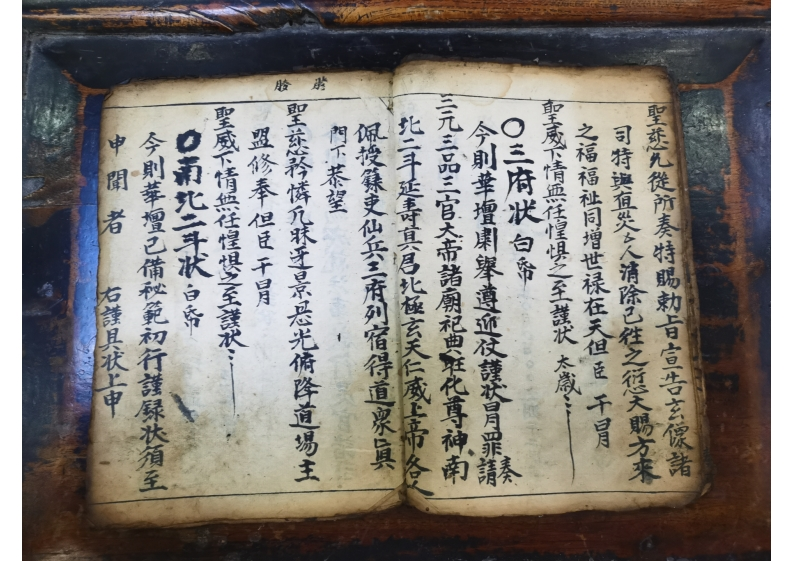 聖慈允從所奏特賜勅旨宣告玄像諸
司特與亱災ム人清除已往之愆大賜方來
之福福祉同增世禄在天但臣干冐
聖威下情無任惶惧之至謹狀 太歲ミ
〇三府狀 白帋
今則華壇肅舉遵迎仗謹狀冐罪奏請
三元三品三官大帝諸廟祀典旺化尊神南
北二斗延壽真君北極玄天仁威上帝各人
佩授籙吏仙兵三府列宿得道衆真
門下恭望
聖慈矜憐凡昧牙景恩光俯降道場主
盟修奉但臣干冐
聖威下情無任惶惧之至謹狀ミ
〇南北二斗狀 白帋
今則華壇已備秘範初行謹錄狀須至
申聞者 右謹具狀上申